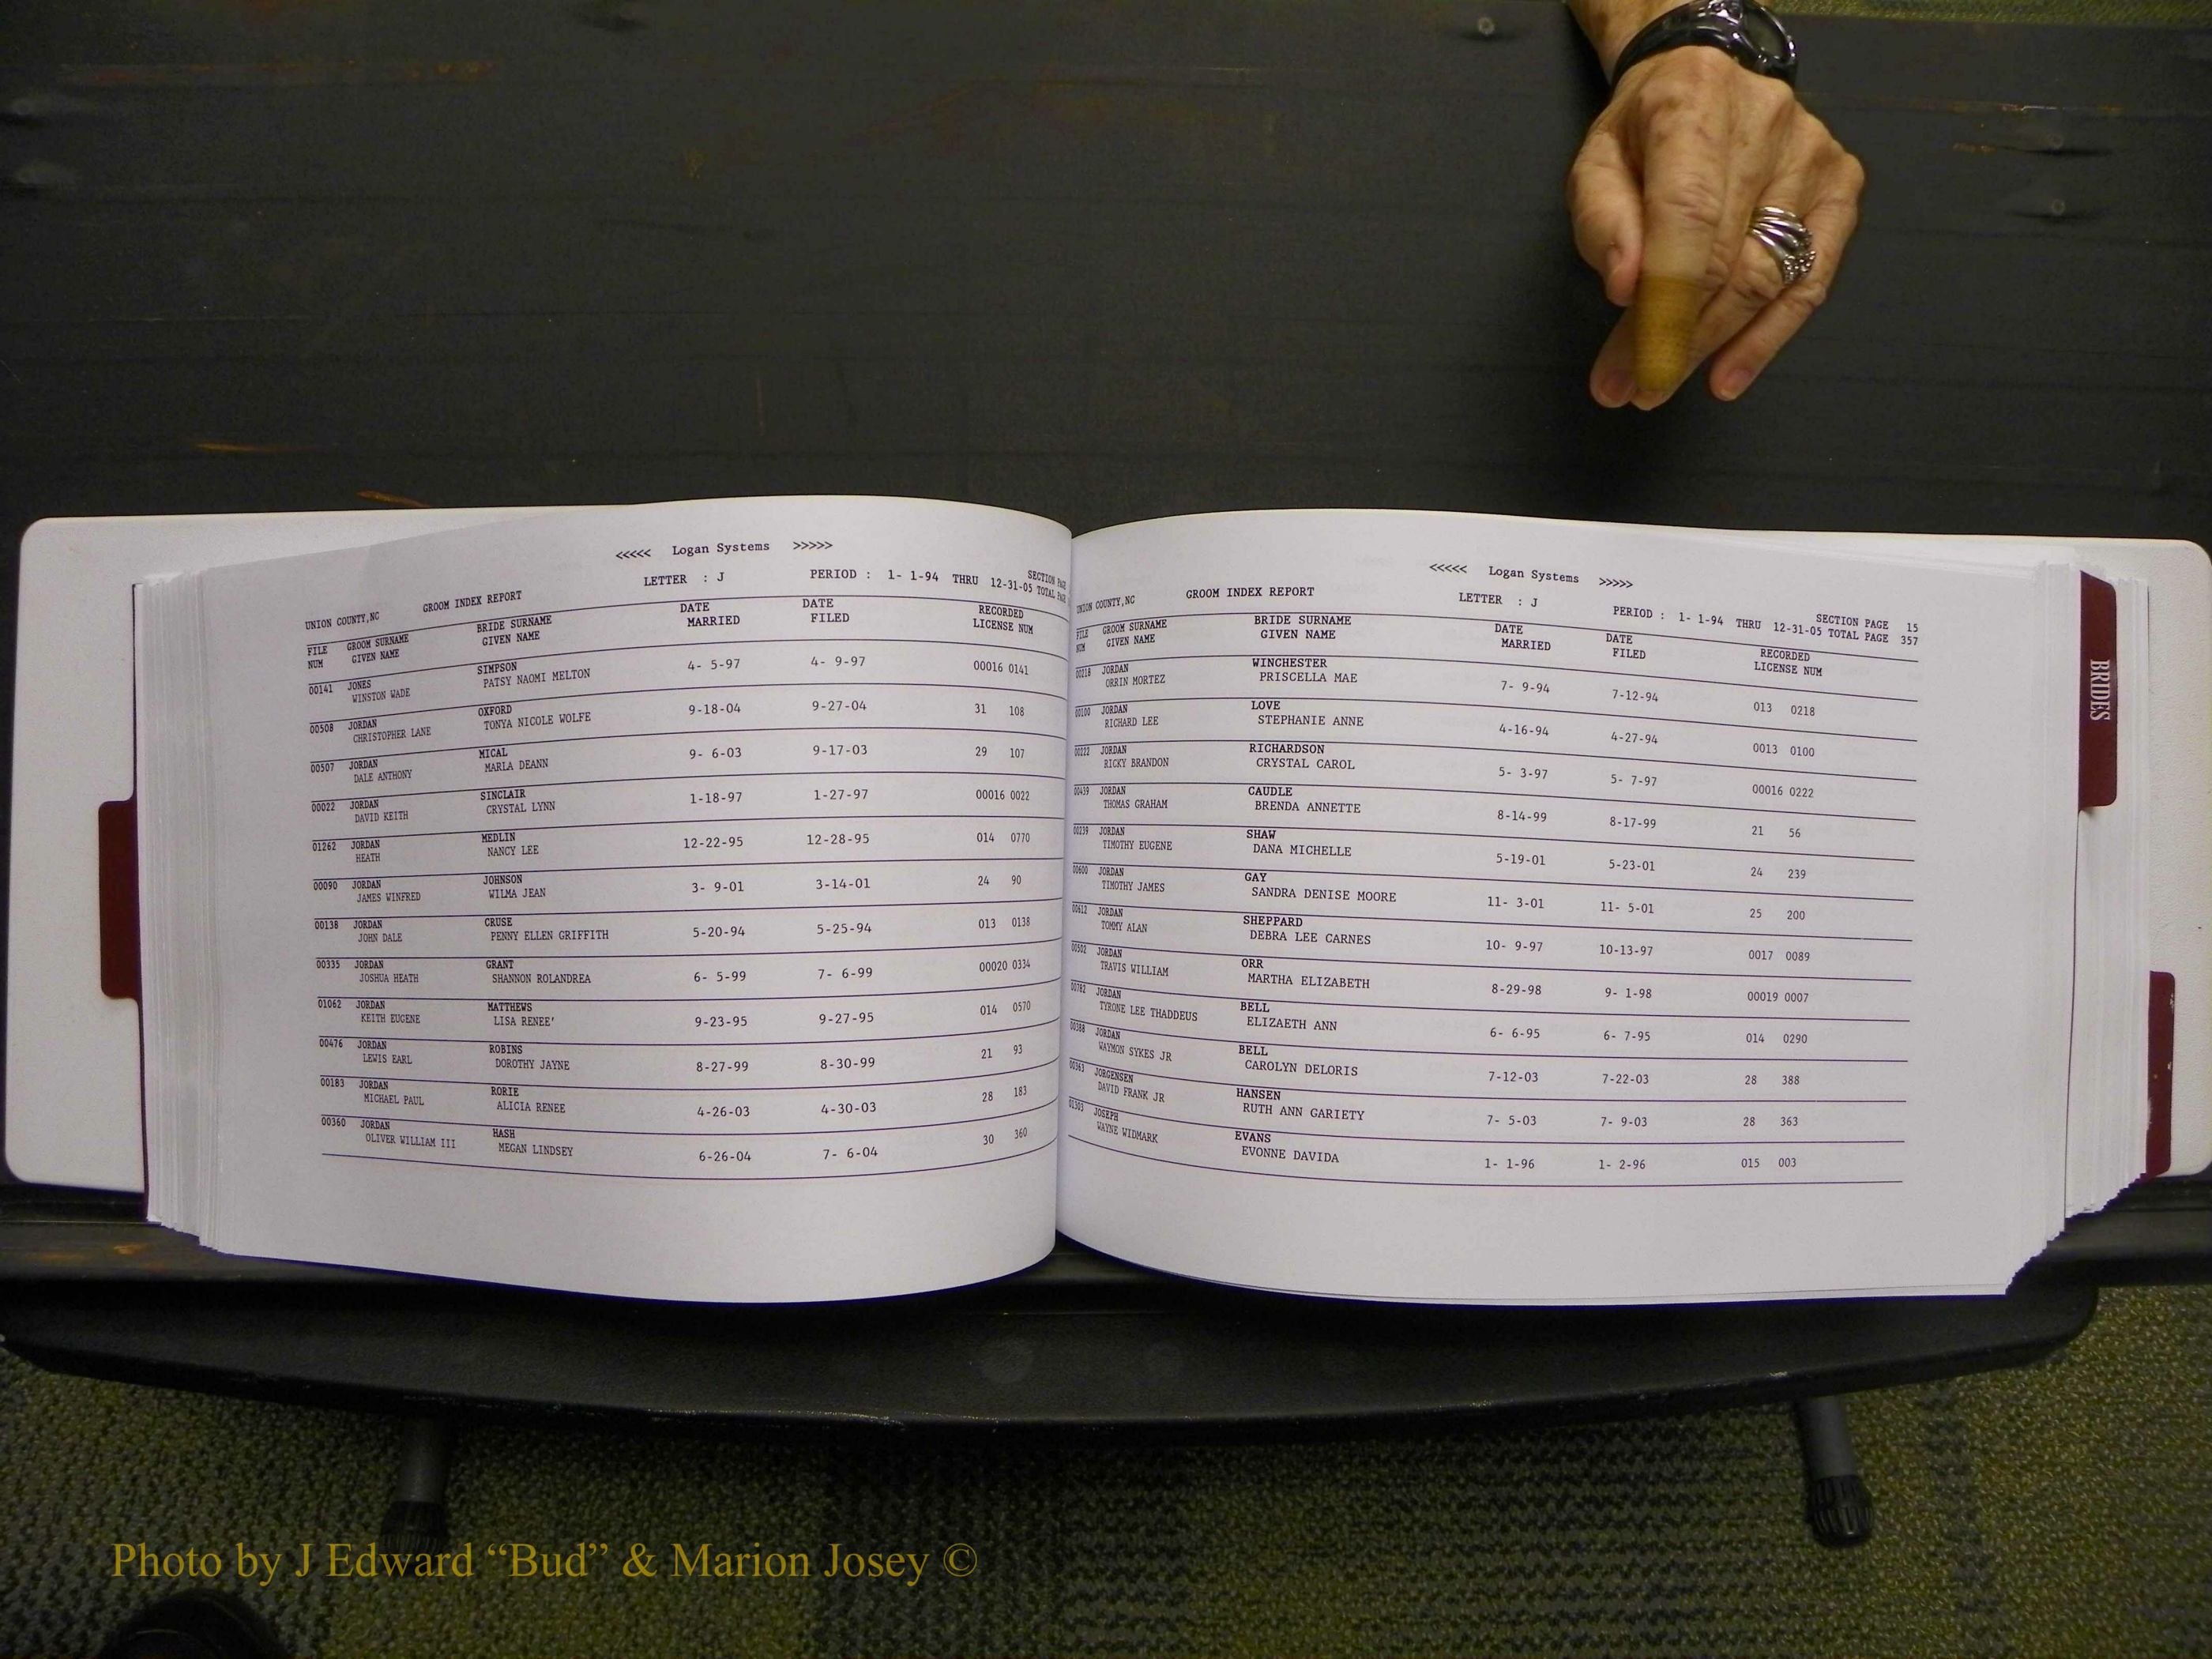 <<<<< Logan Systems >>>>>
UNION COUNTY,NC GROOM INDEX REPORT LETTER : J PERIOD : 1- 1-94 THRU 12-31-05 SECTION PAGE
TOTAL PAGE
FILE GROOM SURNAME BRIDE SURNAME DATE DATE RECORDED
NUM GIVEN NAME GIVEN NAME MARRIED FILED LICENSE NUM
00141 JONES SIMPSON 4- 5-97 4- 9-97 00016 0141
WINSTON WADE PATSY NAOMI MELTON
00508 JORDAN OXFORD 9-18-04 9-27-04 31 108
CHRISTOPHER LANE TONYA NICOLE WOLFE
00507 JORDAN MICAL 9- 6-03 9-17-03 29 107
DALE ANTHONY MARLA DEANN
00022 JORDAN SINCLAIR 1-18-97 1-27-97 00016 0022
DAVID KEITH CRYSTAL LYNN
01262 JORDAN MEDLIN 12-22-95 12-28-95 014 0770
HEATH NANCY LEE
00090 JORDAN JOHNSON 3- 9-01 3-14-01 24 90
JAMES WINFRED WILMA JEAN
00138 JORDAN CRUSE 5-20-94 5-25-94 013 0138
JOHN DALE PENNY ELLEN GRIFFITH
00335 JORDAN GRANT 6- 5-99 7- 6-99 00020 0334
JOSHUA HEATH SHANNON ROLANDREA
01062 JORDAN MATTHEWS 9-23-95 9-27-95 014 0570
KEITH EUGENE LISA RENEE'
00476 JORDAN ROBINS 8-27-99 8-30-99 21 93
LEWIS EARL DOROTHY JAYNE
00183 JORDAN RORIE 4-26-03 4-30-03 28 183
MICHAEL PAUL ALICIA RENEE
00360 JORDAN HASH 6-26-04 7- 6-04 30 360
OLIVER WILLIAM III MEGAN LINDSEY
<<<<< Logan Systems >>>>>
UNION COUNTY,NC GROOM INDEX REPORT LETTER : J PERIOD : 1- 1-94 THRU 12-31-05 SECTION PAGE 15
TOTAL PAGE 357
FILE GROOM SURNAME BRIDE SURNAME DATE DATE RECORDED
NUM GIVEN NAME GIVEN NAME MARRIED FILED LICENSE NUM
00218 JORDAN WINCHESTER 7- 9-94 7-12-94 013 0218
ORRIN MORTEZ PRISCELLA MAE
00100 JORDAN LOVE 4-16-94 4-27-94 0013 0100
RICHARD LEE STEPHANIE ANNE
00222 JORDAN RICHARDSON 5- 3-97 5- 7-97 00016 0222
RICKY BRANDON CRYSTAL CAROL
00439 JORDAN CAUDLE 8-14-99 8-17-99 21 56
THOMAS GRAHAM BRENDA ANNETTE
00239 JORDAN SHAW 5-19-01 5-23-01 24 239
TIMOTHY EUGENE DANA MICHELLE
00600 JORDAN GAY 11- 3-01 11- 5-01 25 200
TIMOTHY JAMES SANDRA DENISE MOORE
00612 JORDAN SHEPPARD 10- 9-97 10-13-97 0017 0089
TOMMY ALAN DEBRA LEE CARNES
00502 JORDAN ORR 8-29-98 9- 1-98 00019 0007
TRAVIS WILLIAM MARTHA ELIZABETH
00782 JORDAN BELL 6- 6-95 6- 7-95 014 0290
TYRONE LEE THADDEUS ELIZAETH ANN
00388 JORDAN BELL 7-12-03 7-22-03 28 388
WAYMON SYKES JR CAROLYN DELORIS
00363 JORGENSEN HANSEN 7- 5-03 7- 9-03 28 363
DAVID FRANK JR RUTH ANN GARIETY
01303 JOSEPH EVANS 1- 1-96 1- 2-96 015 003
WAYNE WIDMARK EVONNE DAVIDA
BRIDES
Photo by J Edward “Bud” & Marion Josey ©